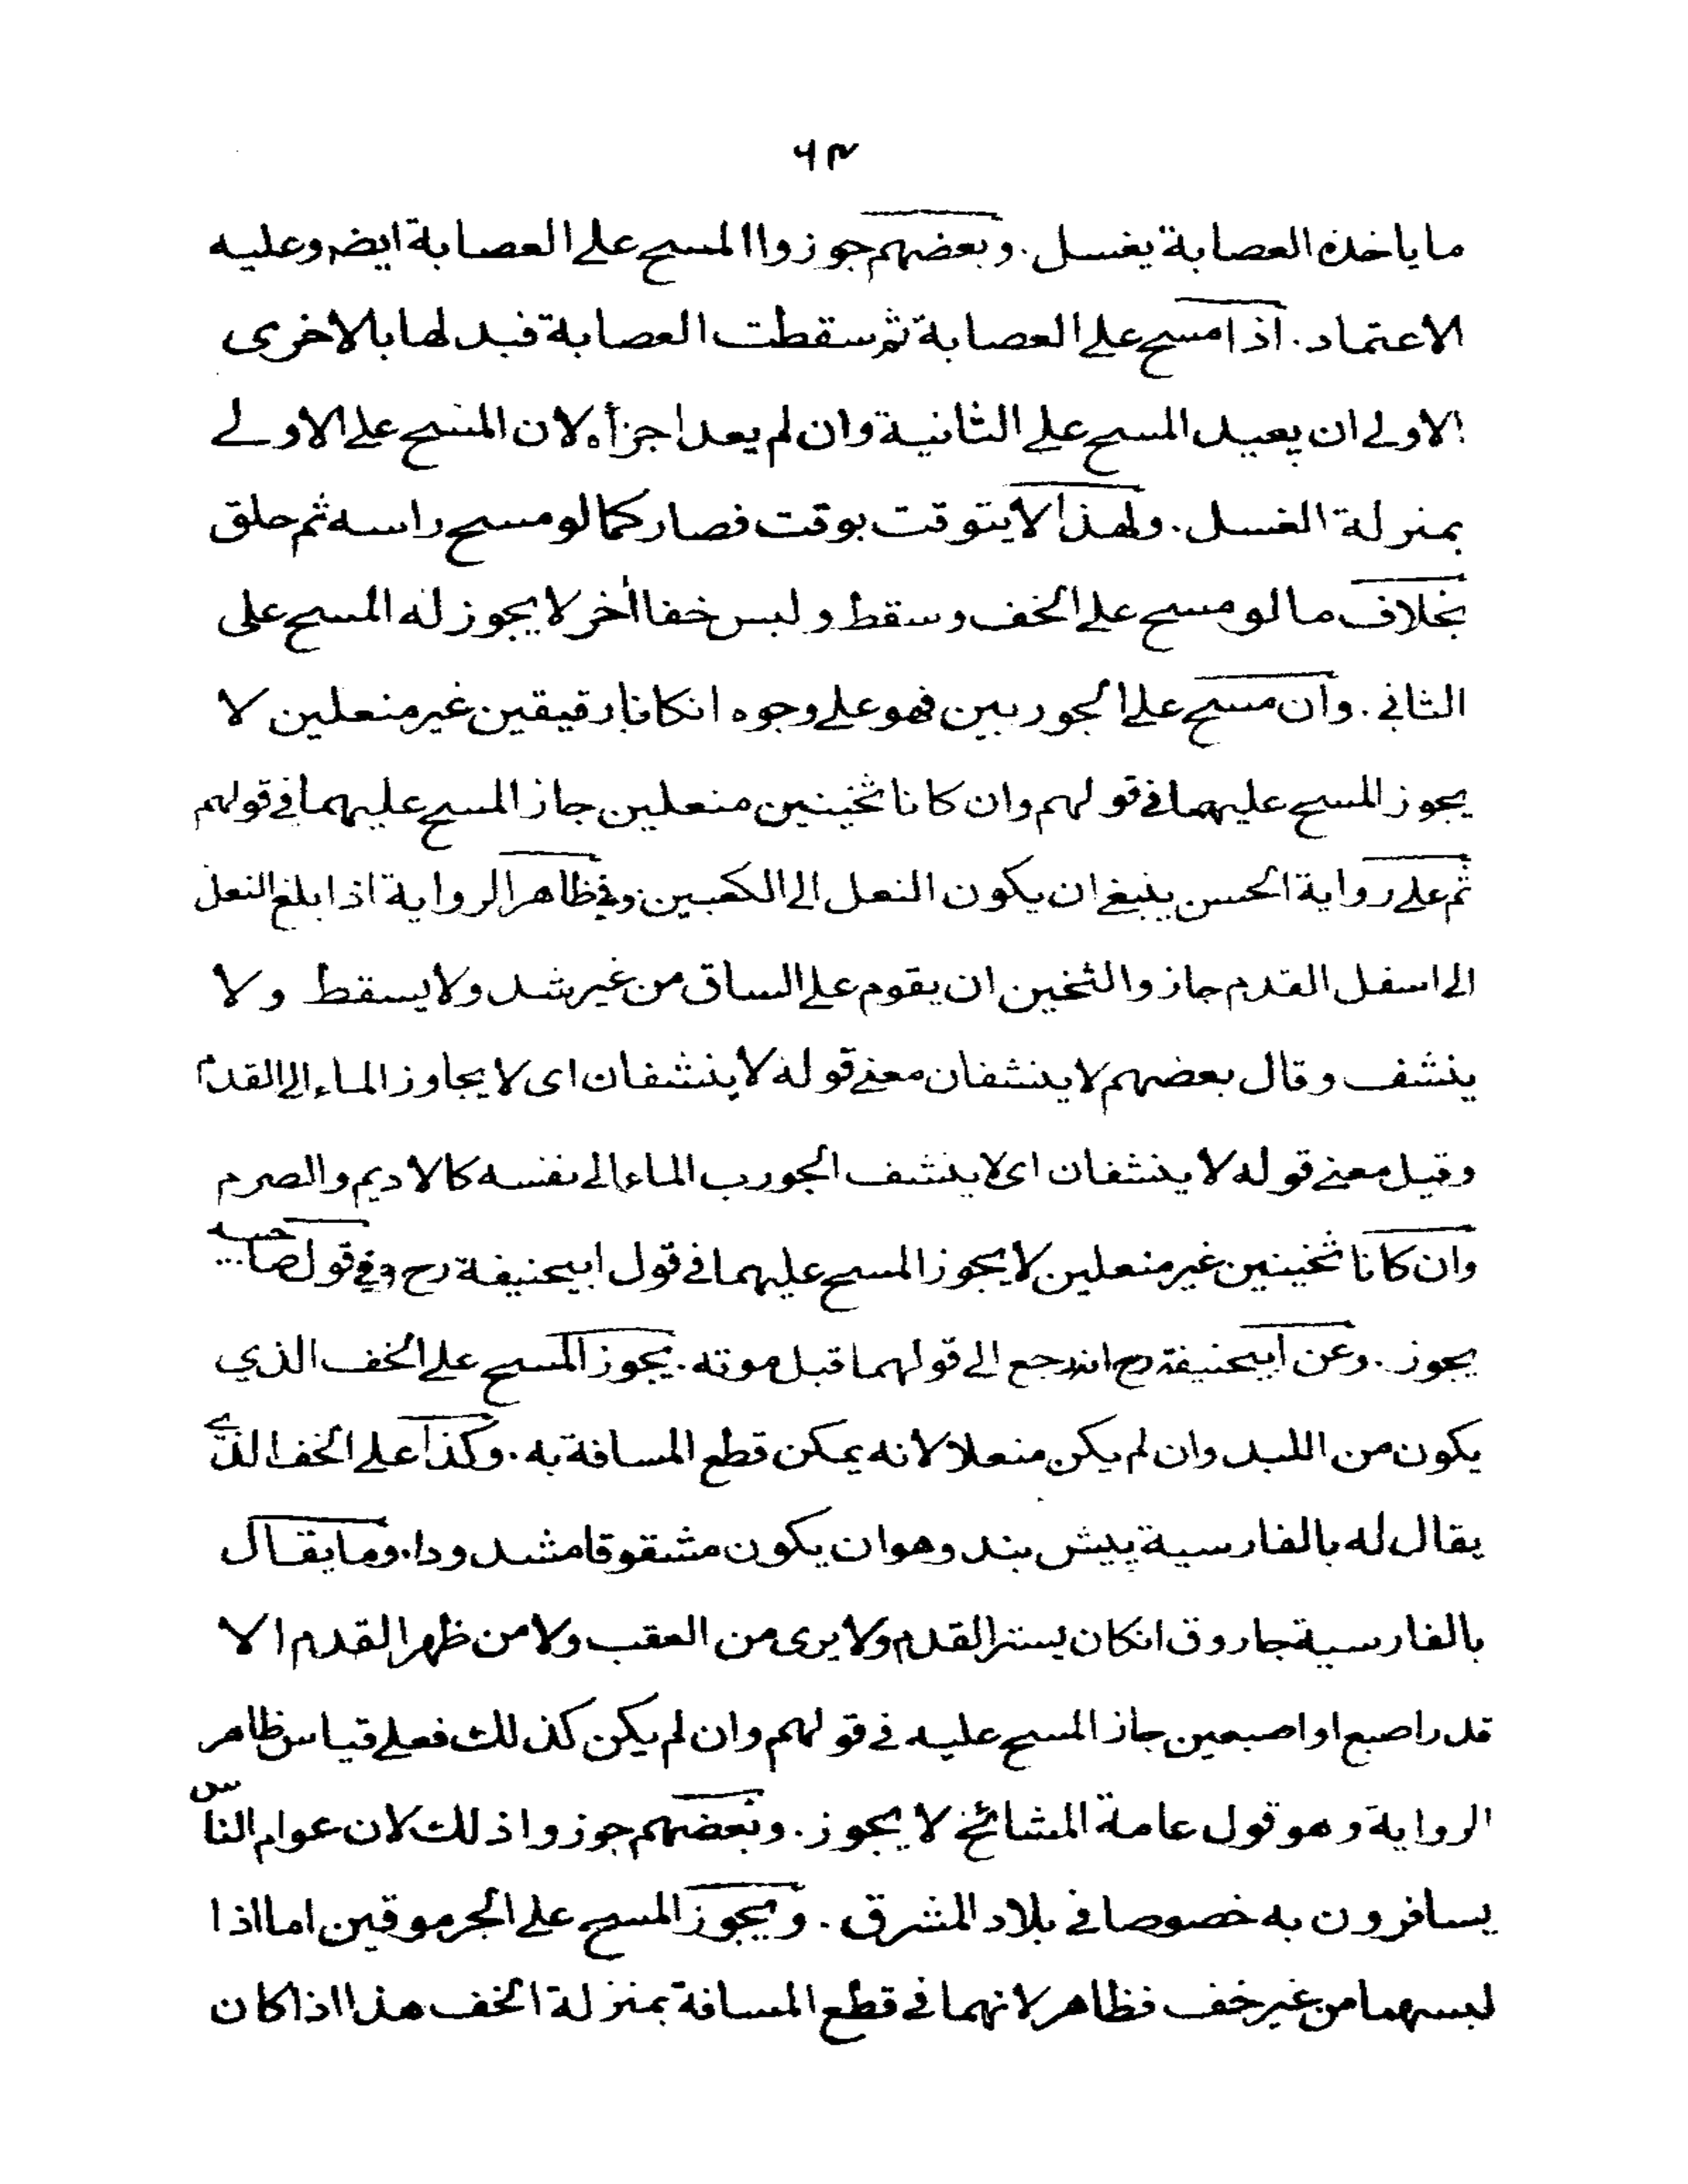 ٦٣
ما ياخذه العصابة يغسل . وبعضهم جوزوا المسح على العصابة ايضم وعليه
الاعتماد . اذا مسح على العصابة ثم سقطت العصابة فبدلها بالاخرى
الاولى ان يعيد المسح على الثانية وان لم يعد اجزأه لان المسح على الاولے
بمنزلة الغسل . ولهذا لا يتوقت بوقت فصار كما لو مسح راسه ثم حلق
بخلاف ما لو مسح على الخف وسقط و لبس خفا أخر لا يجوز له المسح على
الثاني . وان مسح على الجوربين فهو على وجوه انكانا رقيقين غير منعلين لا
يجوز المسح عليهما في قولهم وان كانا ثخينين منعلين جاز المسح عليهما في قولهم
ثم على رواية الحسن ينبغى ان يكون النعل الى الكعبين وفي ظاهر الرواية اذا بلغ النعل
الى اسفل القدم جاز والثخين ان يقوم على الساق من غير شد ولا يسقط ولا
ينشف وقال بعضهم لا ينشفان معنى قوله لا ينشفان اى لا يجاوز الماء الى القدم
وقيل معنى قوله لا ينشفان اى لا ينشف الجورب الماء الى نفسه كالاديم والصرم
وان كانا ثخينين غير منعلين لا يجوز المسح عليهما في قول ابيحنيفة رح وفي قول صاحبيه
يجوز . وعن ابيحنيفة رح انه رجع الى قولهما قبل موته . يجوز المسح على الخف الذي
يكون من اللبد وان لم يكن منعلا لانه يمكن قطع المسافة به . وكذا على الخف الذے
يقال له بالفارسية پيش بند وهو ان يكون مشقوقا مشدودا . وما يقال
بالفارسية جاروق انكان يستر القدم ولا يرى من العقب ولا من ظهر القدم الا
قدر اصبع او اصبعين جاز المسح عليه في قولهم وان لم يكن كذلك فعلى قياس ظاهر
الرواية وهو قول عامة المشائخ لا يجوز . وبعضهم جوزوا ذلك لان عوام الناس
يسافرون به خصوصا في بلاد المشرق . ويجوز المسح على الجرموقين اما اذا
لبسهما من غير خف فظاهر لانهما في قطع المسافة بمنزلة الخف هذا اذا كان